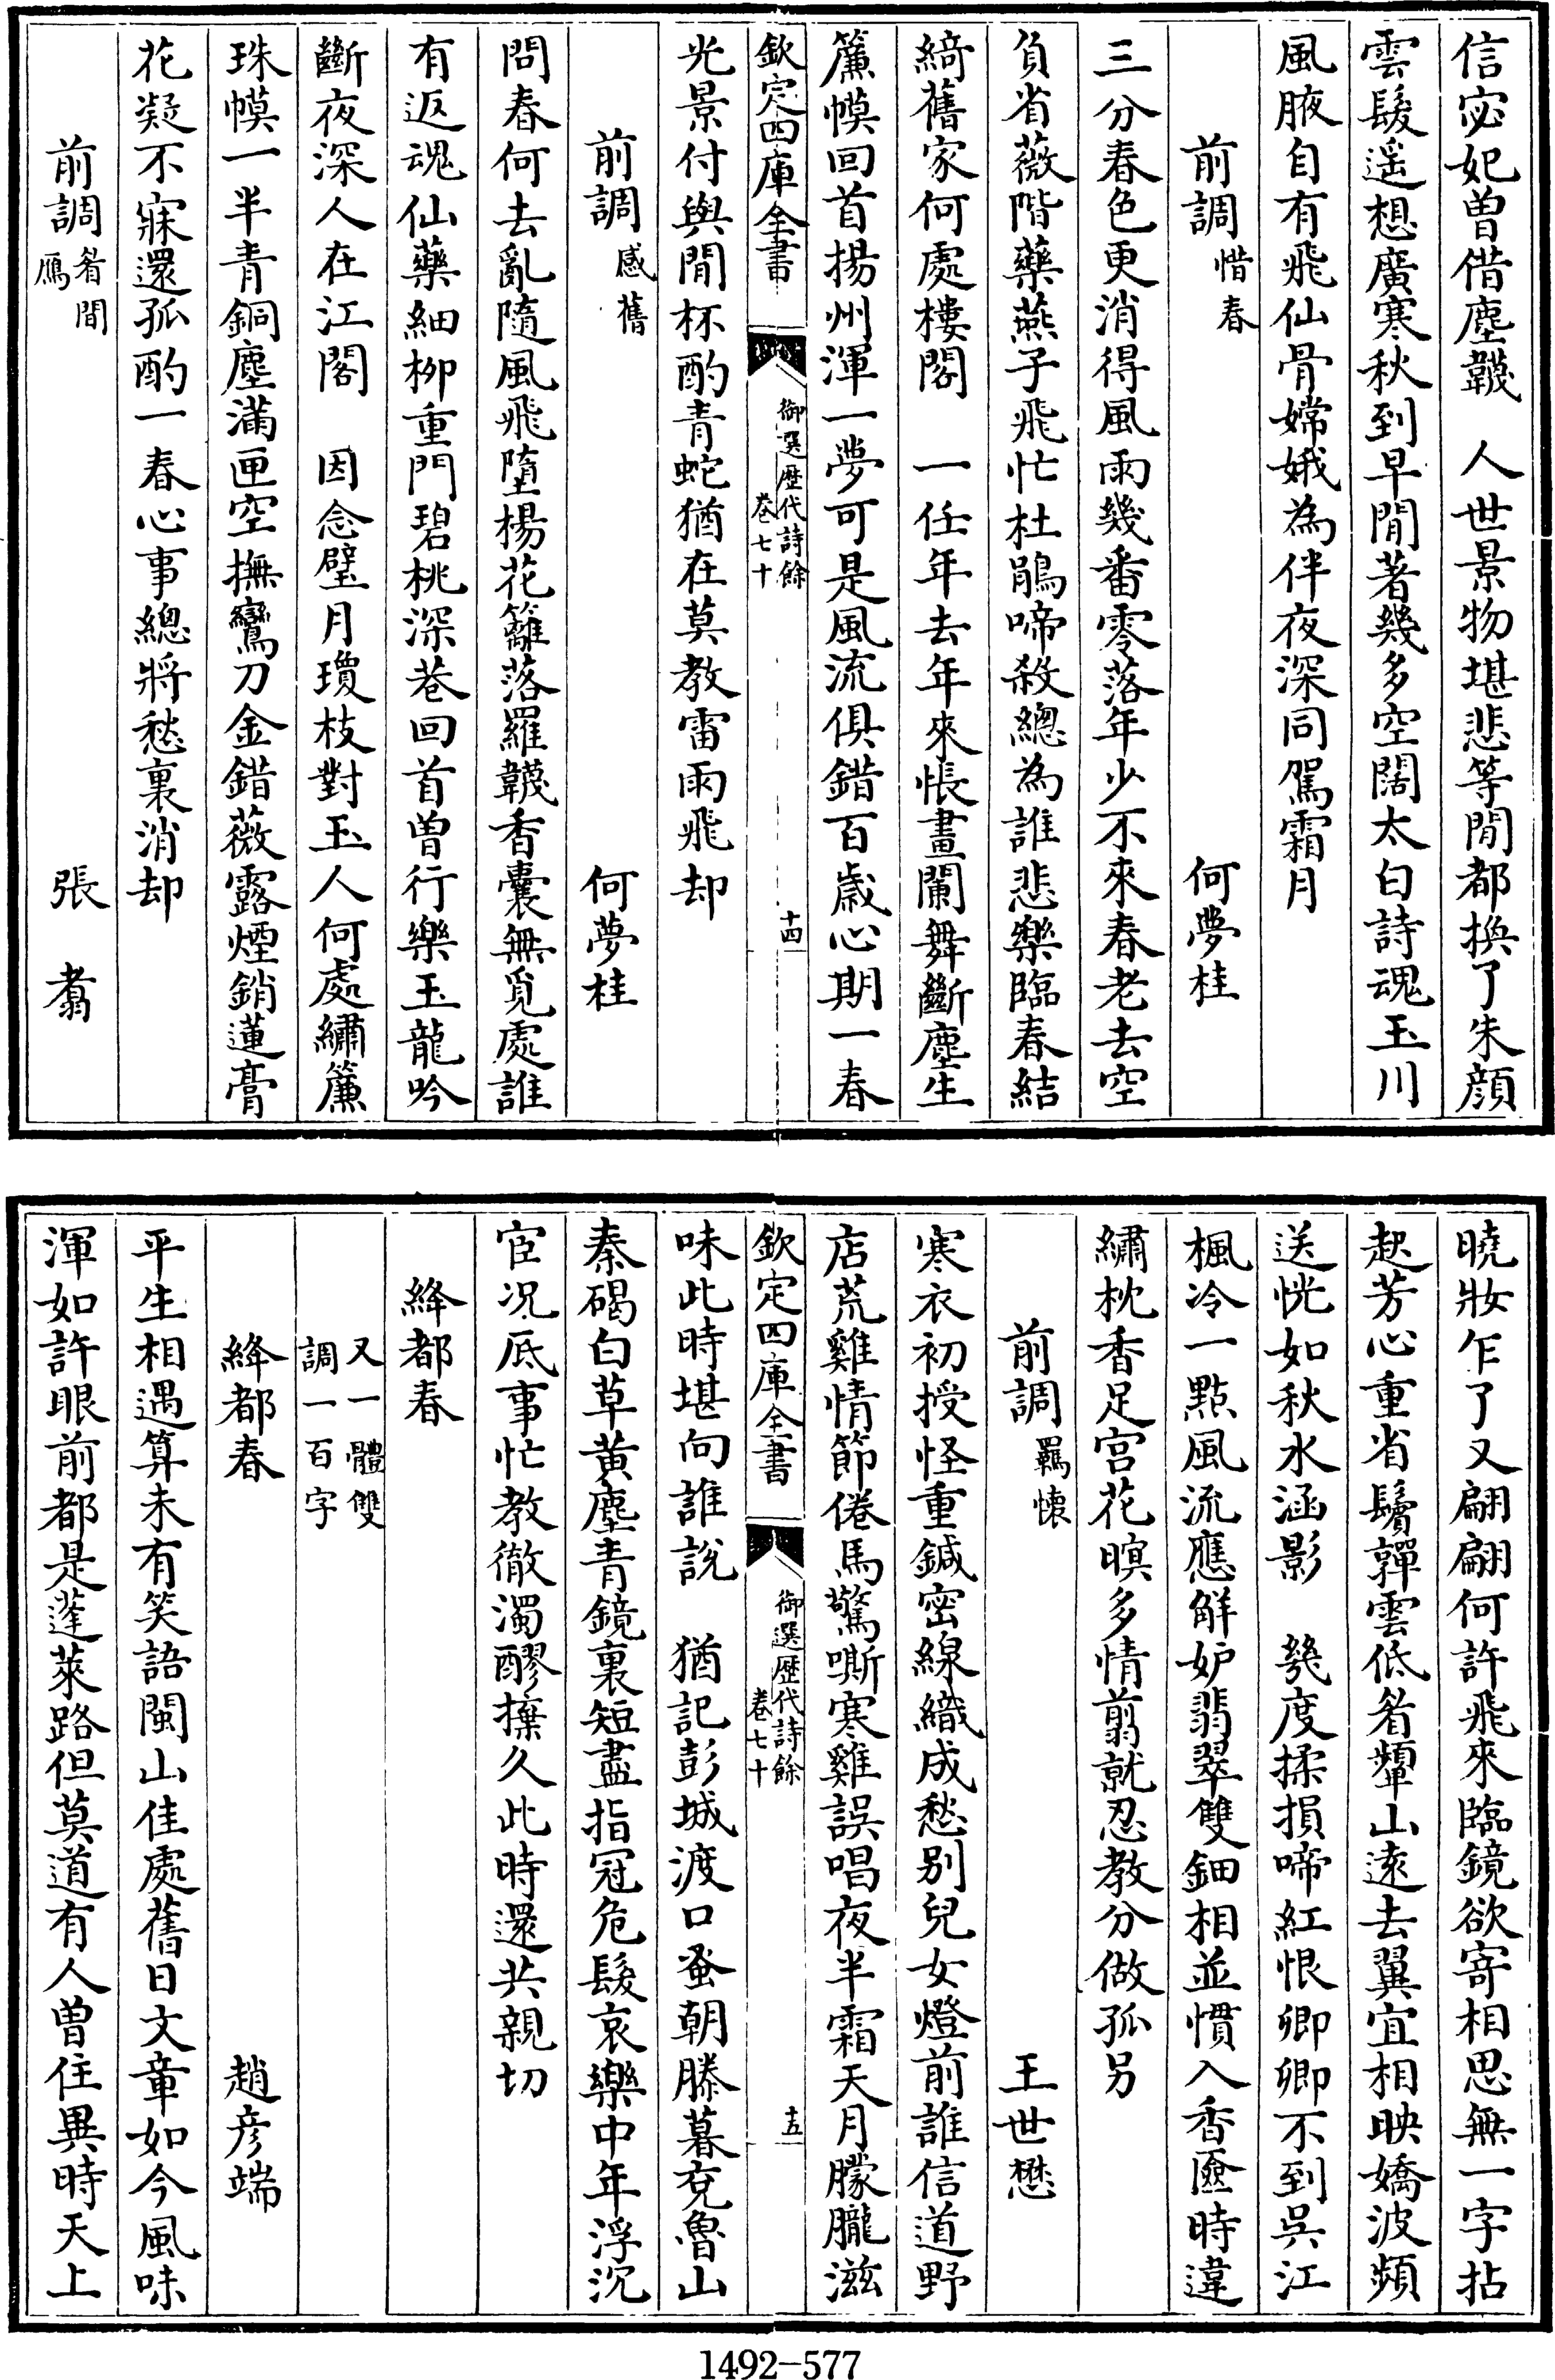 信宓妃曾借塵韈　人世景物堪悲等閒都換了朱顔
雲髮遥想廣寒秋到早閒著幾多空闊太白詩魂玉川
風腋自有飛仙骨嫦娥為伴夜深同駕霜月
前調惜春　何夢桂
三分春色更消得風雨幾番零落年少不來春老去空
負省薇階藥燕子飛忙杜鵑啼殺總為誰悲樂臨春結
綺舊家何處樓閣　一任年去年來悵畫闌舞斷塵生
簾幙回首揚州渾一夢可是風流俱錯百歲心期一春
欽定四庫全書　御選歴代詩餘卷七十　十四
光景付與閒杯酌青蛇猶在莫教雷雨飛却
前調感舊　何夢桂
問春何去亂隨風飛墮楊花籬落羅韈香囊無覓處誰
有返魂仙藥細柳重門碧桃深巷回首曾行樂玉龍吟
斷夜深人在江閣　因念璧月瓊枝對玉人何處繡簾
珠幙一半青銅塵滿匣空撫鸞刀金錯薇露煙銷蓮膏
花凝不寐還孤酌一春心事總將愁裏消却
前調眉間鴈　張翥
曉妝乍了又翩翩何許飛來臨鏡欲寄相思無一字拈
起芳心重省鬢嚲雲低眉顰山遠去翼宜相映嬌波頻
送恍如秋水涵影　幾度揉損啼紅恨卿卿不到吳江
楓冷一點風流應解妒翡翠雙鈿相並慣入香匳時違
繡枕香足宫花暝多情翦就忍教分做孤另
前調羈懷　王世懋
寒衣初授怪重鍼密線織成愁别兒女燈前誰信道野
店荒雞情節倦馬驚嘶寒雞誤唱夜半霜天月朦朧滋
欽定四庫全書　御選歴代詩餘卷七十　十五
味此時堪向誰說　猶記彭城渡口蚤朝滕暮兖魯山
秦碣白草黄塵青鏡裏短盡指冠危髮哀樂中年浮沉
宦况底事忙教徹濁醪搆久此時還共親切
絳都春
又一體雙調一百字
絳都春　趙彦端
平生相遇算未有笑語閩山佳處舊日文章如今風味
渾如許眼前都是蓬萊路但莫道有人曾住異時天上
1492-577